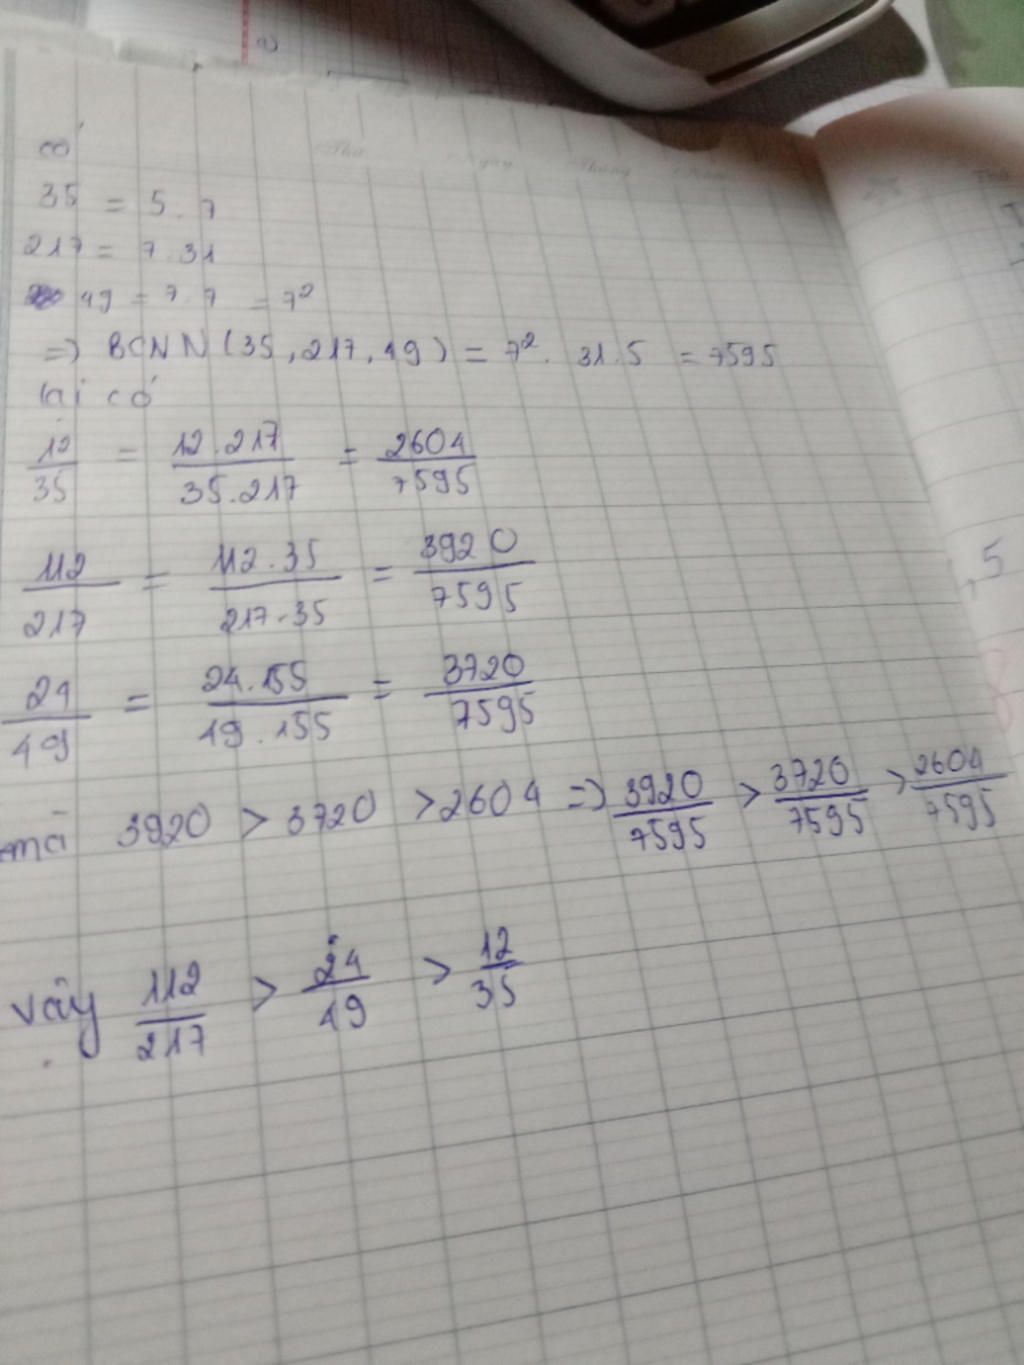 có
35 = 5.7
217 = 7.31
49 = 7.7 = 7²
=> BCNN(35,217,49) = 7².31.5 = 7595
lại có
12/35 = 12.217/35.217 = 2604/7595
112/217 = 112.35/217.35 = 3920/7595
24/49 = 24.155/49.155 = 3720/7595
mà 3920 > 3720 > 2604 => 3920/7595 > 3720/7595 > 2604/7595
vậy 112/217 > 24/49 > 12/35